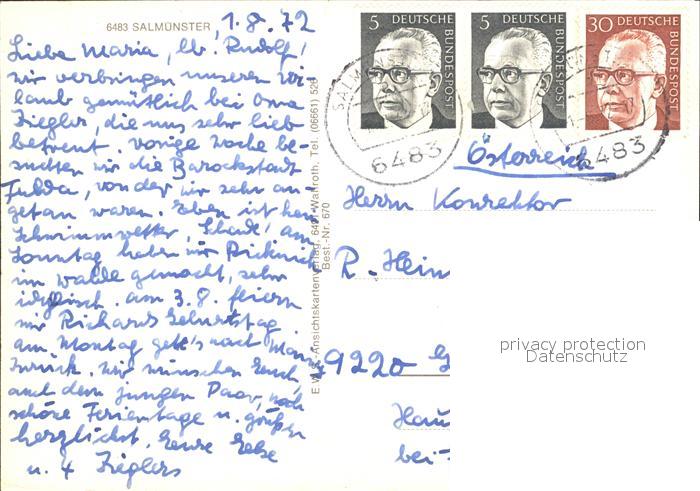 6483 SALMÜNSTER
1.8.72
Liebe Maria, lb. Rudolf!
wir verbringen unseren Ur-
laub gemütlich bei Oma
Ziegler, die uns sehr lieb
betreut. Vorige Woche be-
suchten wir die Barockstadt
Fulda, von der wir sehr an-
getan waren. Eben ist kein
Schwimmwetter, schade! Am
Sonntag haben wir Picknick
im Walde gemacht, sehr
idyllisch. Am 3.8. feiern
wir Richards Geburtstag.
Am Montag geht's nach
zurück. Wir wünschen Euch,
auch dem jungen Paar, noch
schöne Ferientage u. grüßen
herzlichst Eure
u. 4 Zieglers
E.W.S.-Ansichtskartenverlag, 6491 Wallroth, Tel. (06661) 526
Best.-Nr. 670
5 DEUTSCHE BUNDESPOST
5 DEUTSCHE BUNDESPOST
30 DEUTSCHE BUNDESPOST
SALMÜNSTER
6483
6483
Österreich
Herrn Konrektor
R. Hein
9220
Hau
bei
privacy protection
Datenschutz